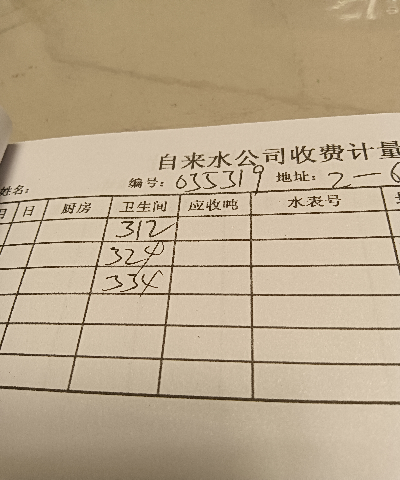 自来水公司收费计量
姓名: 编号: 035319 地址: 2-6
月 日 厨房 卫生间 应收吨 水表号
312
324
334